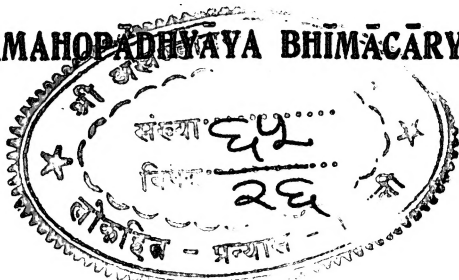 MAHOPĀDHYĀYA BHĪMĀCĀRY
श्री
संख्या ६५
विषय २६
लोकहित - प्रन्यास